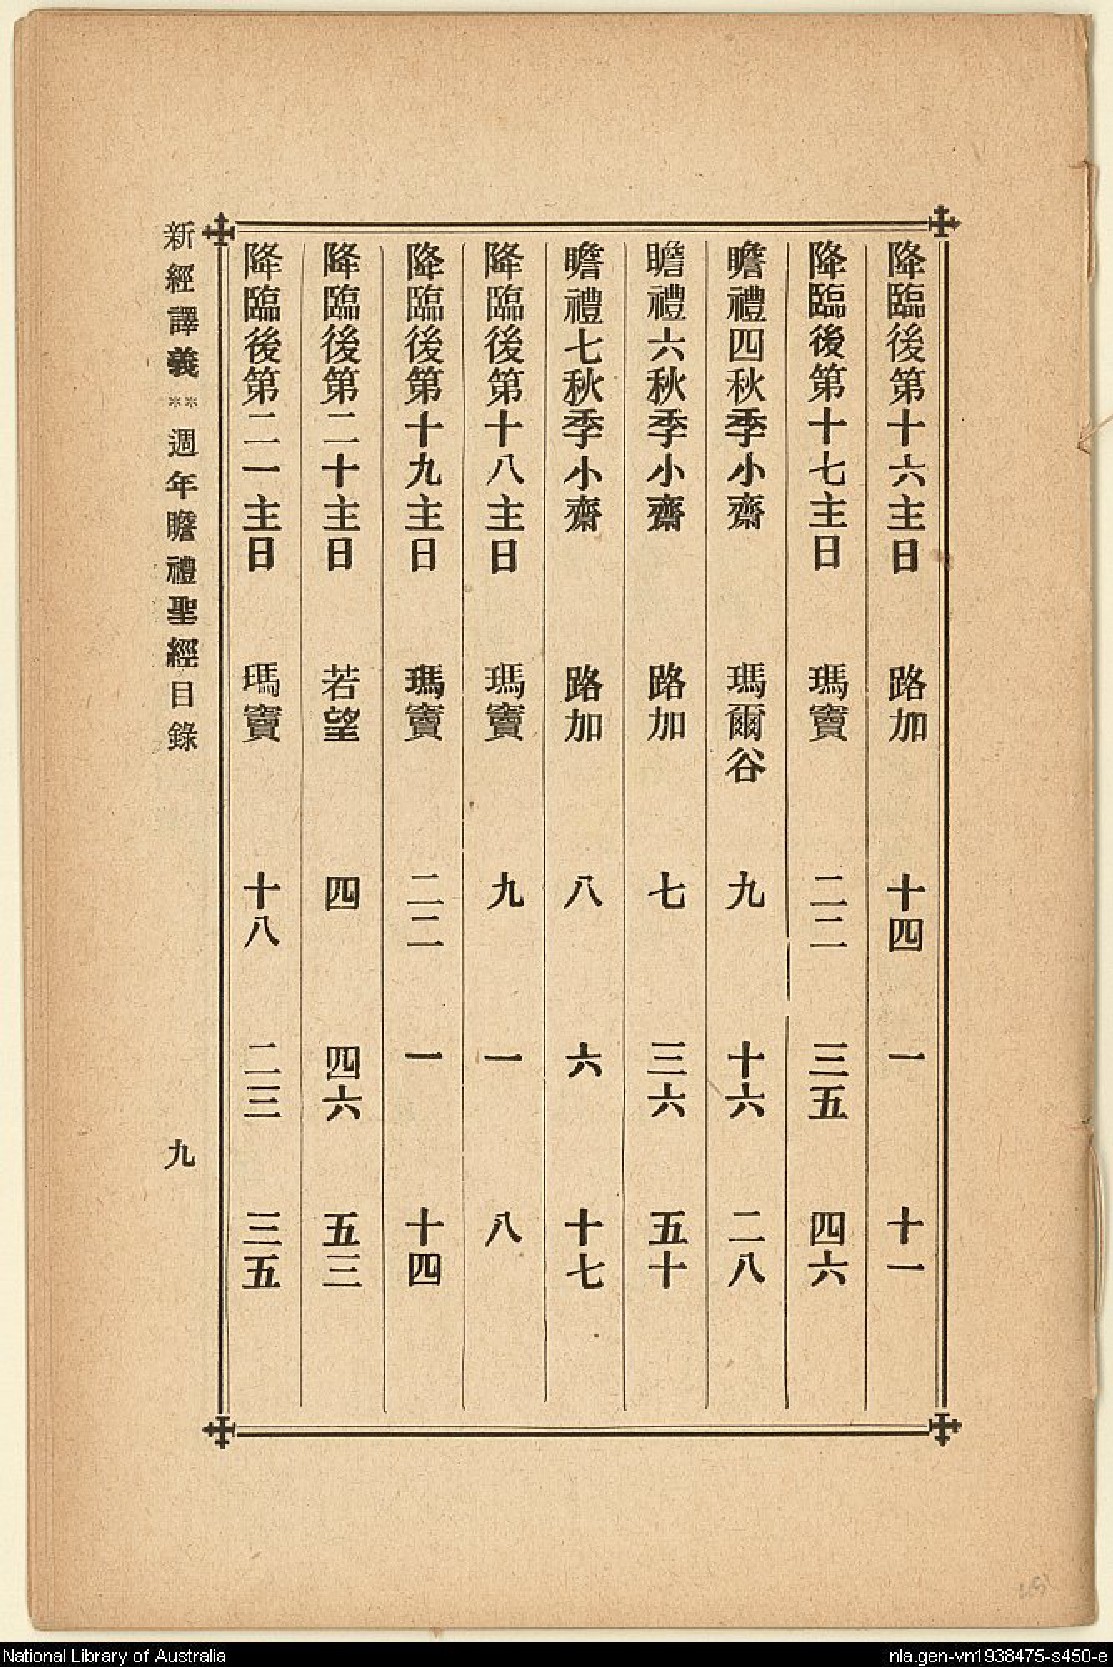 降臨後第十六主日　路加　十四　一　十一
降臨後第十七主日　瑪竇　二二　三五　四六
瞻禮四秋季小齋　瑪爾谷　九　十六　二八
瞻禮六秋季小齋　路加　七　三六　五十
瞻禮七秋季小齋　路加　八　六　十七
降臨後第十八主日　瑪竇　九　一　八
降臨後第十九主日　瑪竇　二二　一　十四
降臨後第二十主日　若望　四　四六　五三
降臨後第二一主日　瑪竇　十八　二三　三五
新經譯義※※週年瞻禮聖經目錄　九
National Library of Australia
nla.gen-vn1938475-s450-e